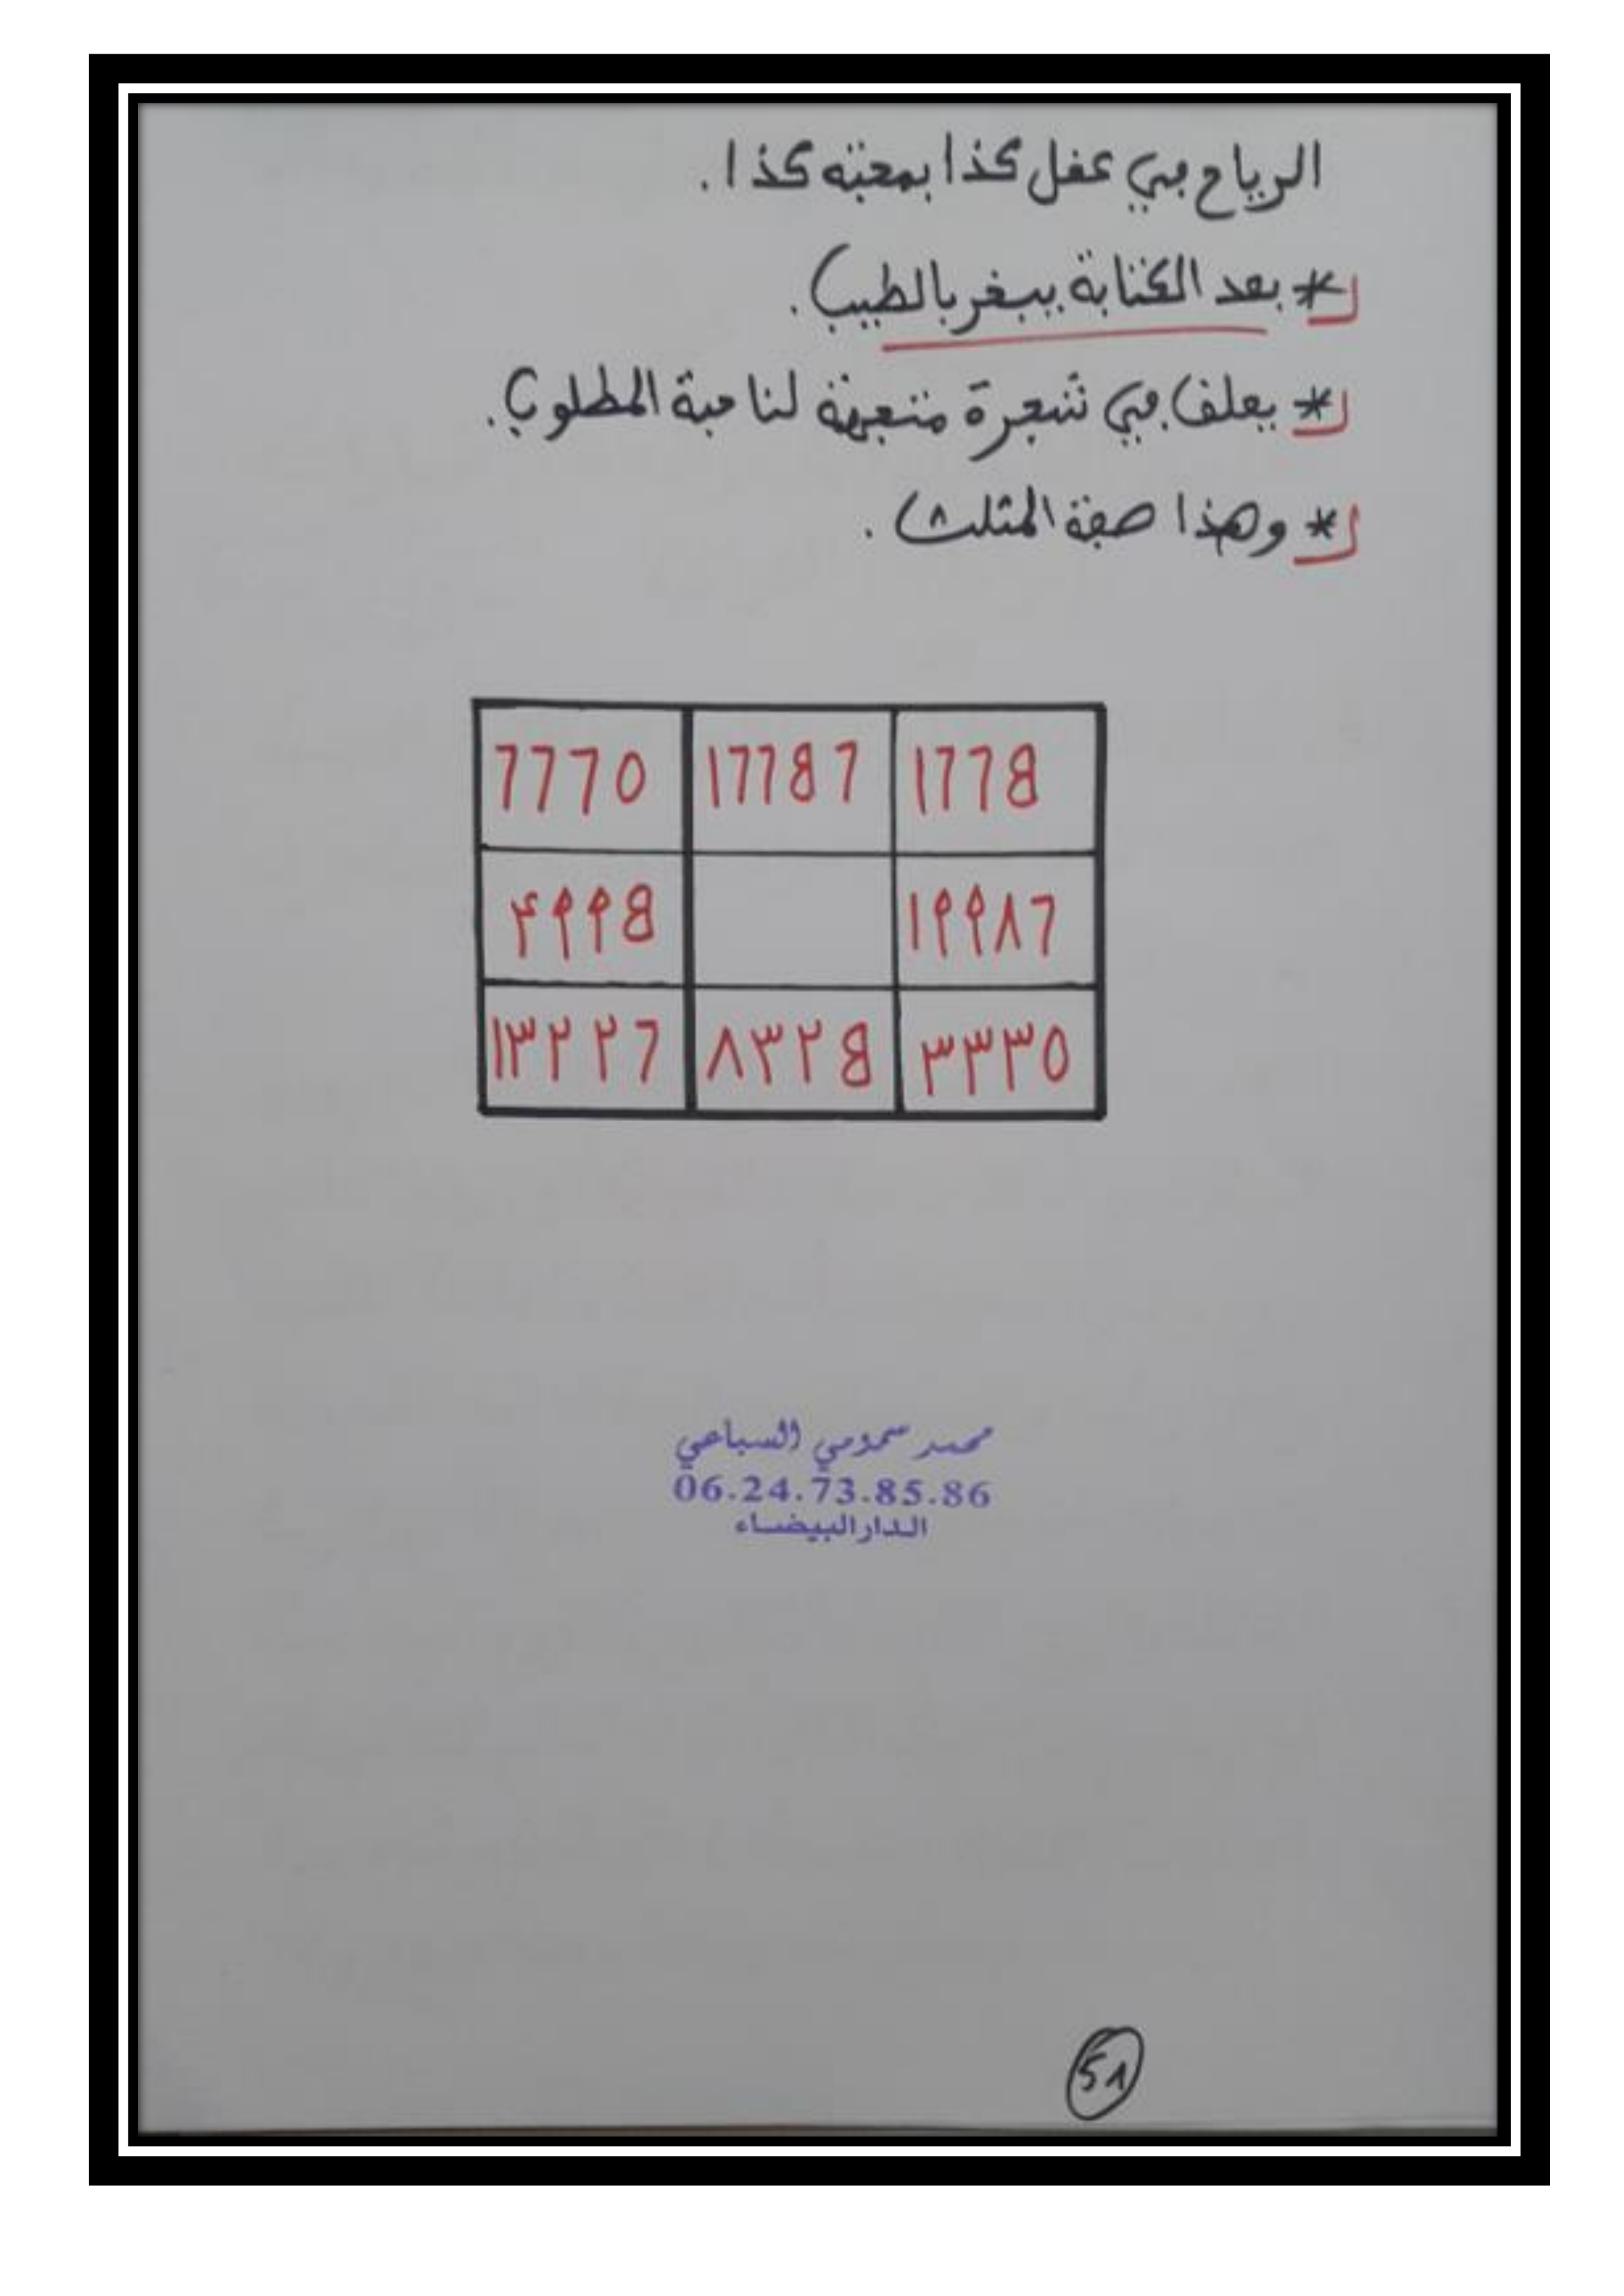 الرياح في عقل كذا بمحبة كذا.
* بعد الكتابة يبخر بالطيب.
* يعلق في شجرة متجهة لناحية المطلوب.
* وهذا صفة المثلث.
٦٦٦٥ ١٦٦٤٦ ١٦٦٤
٤٩٩٤ ١٩٩٨٦
١٣٢٢٦ ٨٣٢٤ ٣٣٣٥
محمد سمومي السباعي
06.24.73.85.86
الدار البيضاء
51